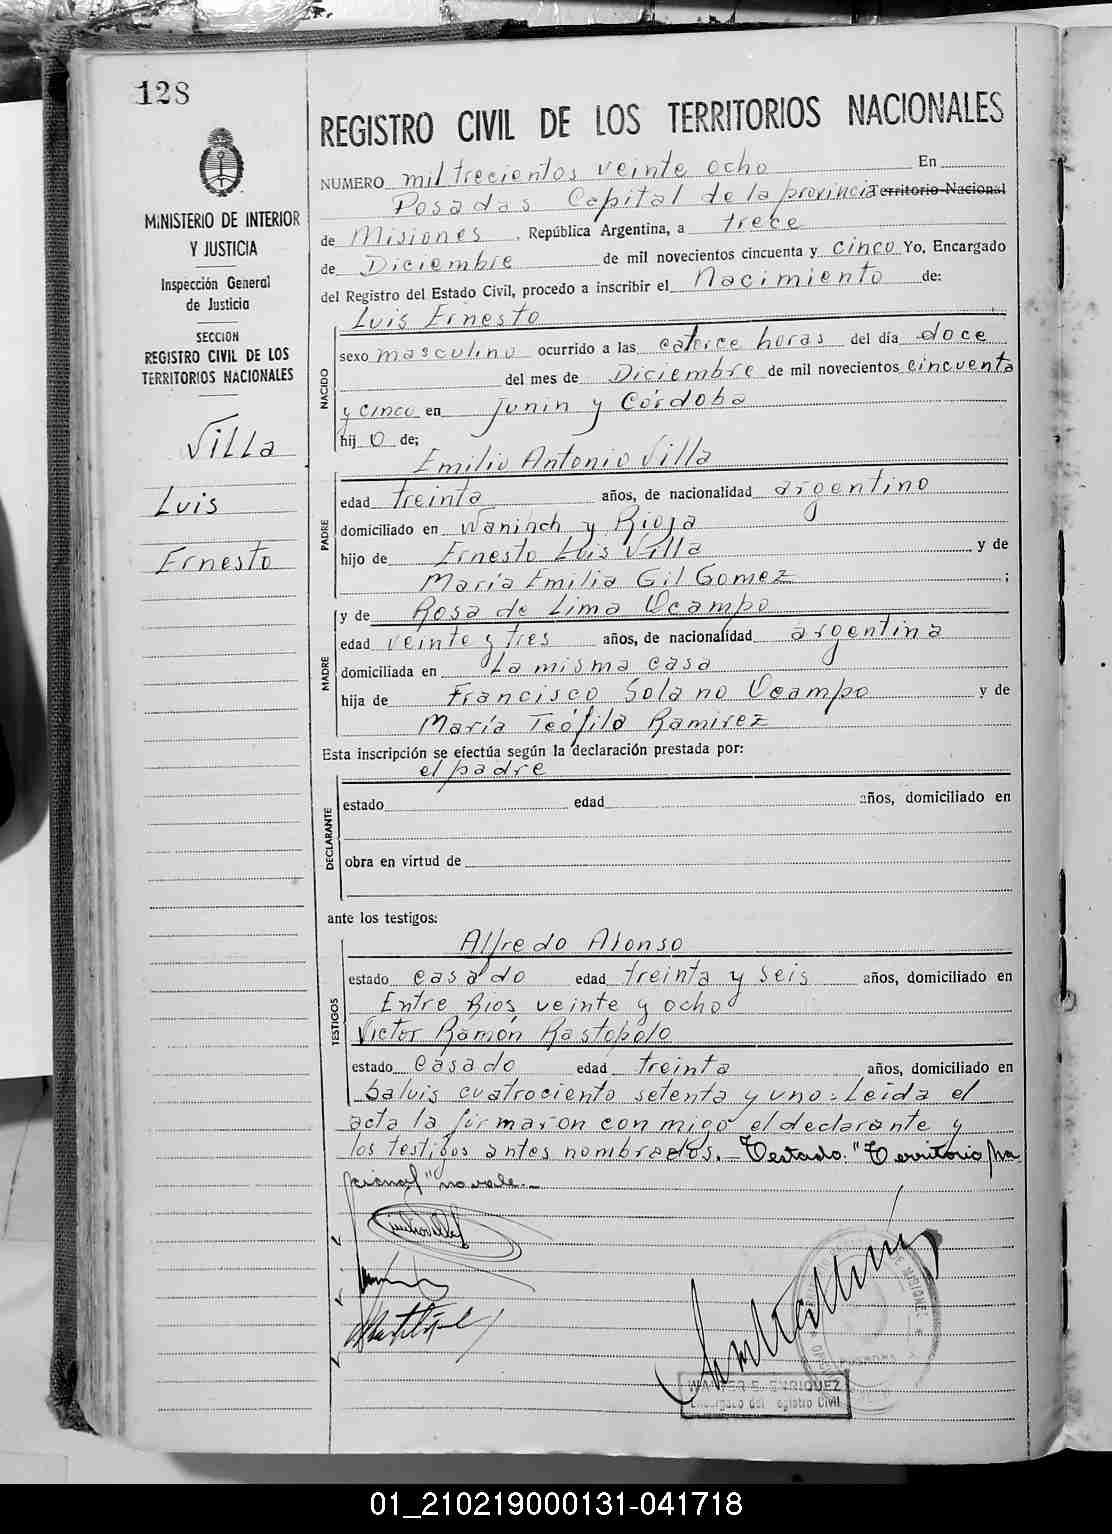 128
MINISTERIO DE INTERIOR
Y JUSTICIA
Inspección General
de Justicia
SECCION
REGISTRO CIVIL DE LOS
TERRITORIOS NACIONALES
Villa
Luis
Ernesto
REGISTRO CIVIL DE LOS TERRITORIOS NACIONALES
NUMERO mil trecientos veinte ocho En
Posadas Capital de la provincia Territorio Nacional
de Misiones, República Argentina, a trece
de Diciembre de mil novecientos cincuenta y cinco Yo, Encargado
del Registro del Estado Civil, procedo a inscribir el Nacimiento de:
NACIDO
Luis Ernesto
sexo masculino ocurrido a las catorce horas del día doce
del mes de Diciembre de mil novecientos cincuenta
y cinco en Junin y Córdoba
hij o de;
PADRE
Emilio Antonio Villa
edad treinta años, de nacionalidad argentino
domiciliado en y Rioja
hijo de Ernesto Luis Villa y de
María Emilia Gil Gomez ;
MADRE
y de Rosa de Lima Ocampo
edad veinte y tres años, de nacionalidad argentina
domiciliada en La misma casa
hija de Francisco Solano Ocampo y de
María Teófila Ramirez
Esta inscripción se efectúa según la declaración prestada por:
DECLARANTE
el padre
estado edad años, domiciliado en
obra en virtud de
ante los testigos:
TESTIGOS
Alfredo Alonso
estado casado edad treinta y seis años, domiciliado en
Entre Rios veinte y ocho
Victor Ramón Rastopolo
estado casado edad treinta años, domiciliado en
Saluis cuatrociento setenta y uno. Leida el
acta la firmaron conmigo el declarante y
los testigos antes nombrados. Testado: "Territorio Na
cional" no vale.
WALTER E. ENRIQUEZ
Encargado del Registro Civil
01_210219000131-041718